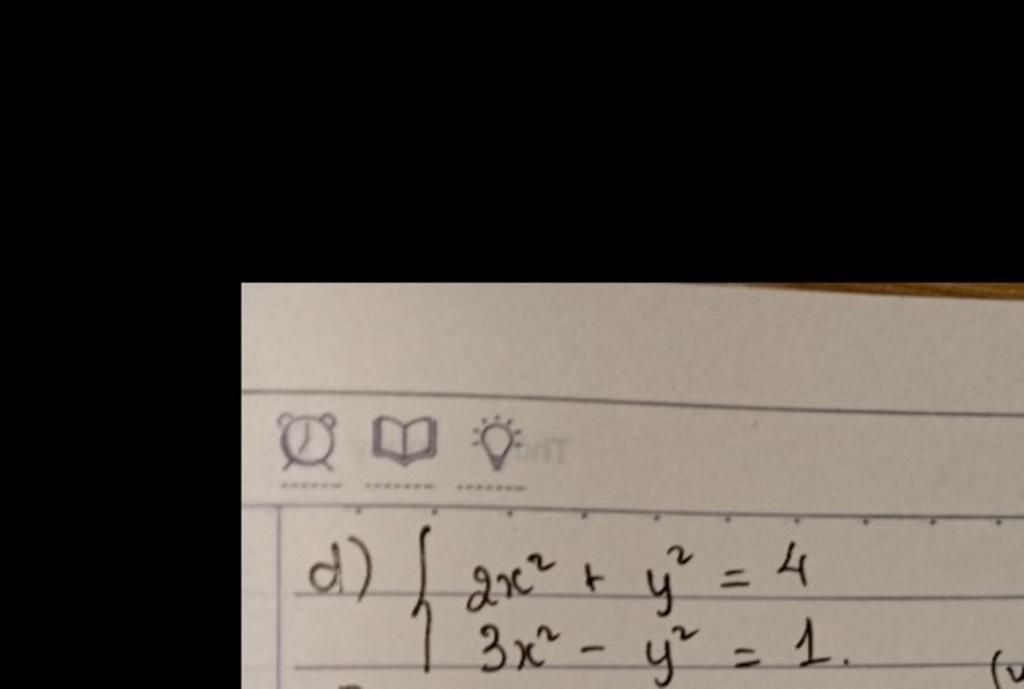 d) { 2x² + y² = 4
3x² - y² = 1.